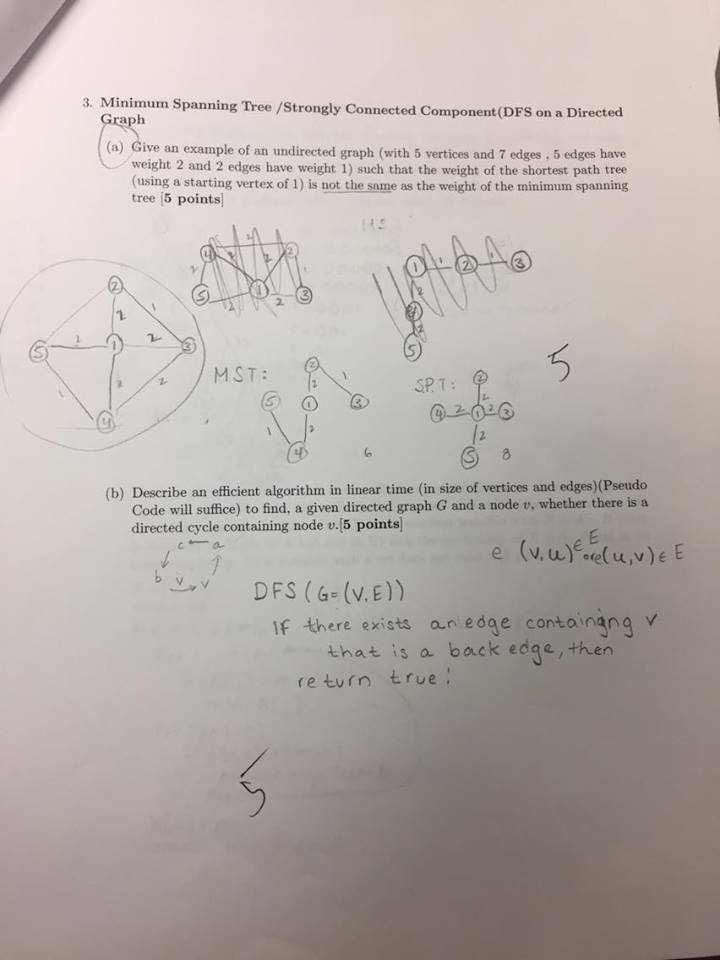 3. Minimum Spanning Tree /Strongly Connected Component(DFS on a Directed
Graph
(a) Give an example of an undirected graph (with 5 vertices and 7 edges , 5 edges have
weight 2 and 2 edges have weight 1) such that the weight of the shortest path tree
(using a starting vertex of 1) is not the same as the weight of the minimum spanning
tree [5 points]
MS
4 2 2 2
2 2 1
5 1 3
2 2
1 1 2 1 3
2
4
2
5
2
2 1
5 1 2 3
2 2
1 4
MST:
2
2 1
5 1 3
1 2
4 6
S.P.T:
2
2
4 2 1 2 3
2
5 8
5
(b) Describe an efficient algorithm in linear time (in size of vertices and edges)(Pseudo
Code will suffice) to find, a given directed graph G and a node v, whether there is a
directed cycle containing node v.[5 points]
c a
b v v
e (v,u)∈E or e(u,v)∈E
DFS (G=(V,E))
If there exists an edge containing v
that is a back edge, then
return true!
5